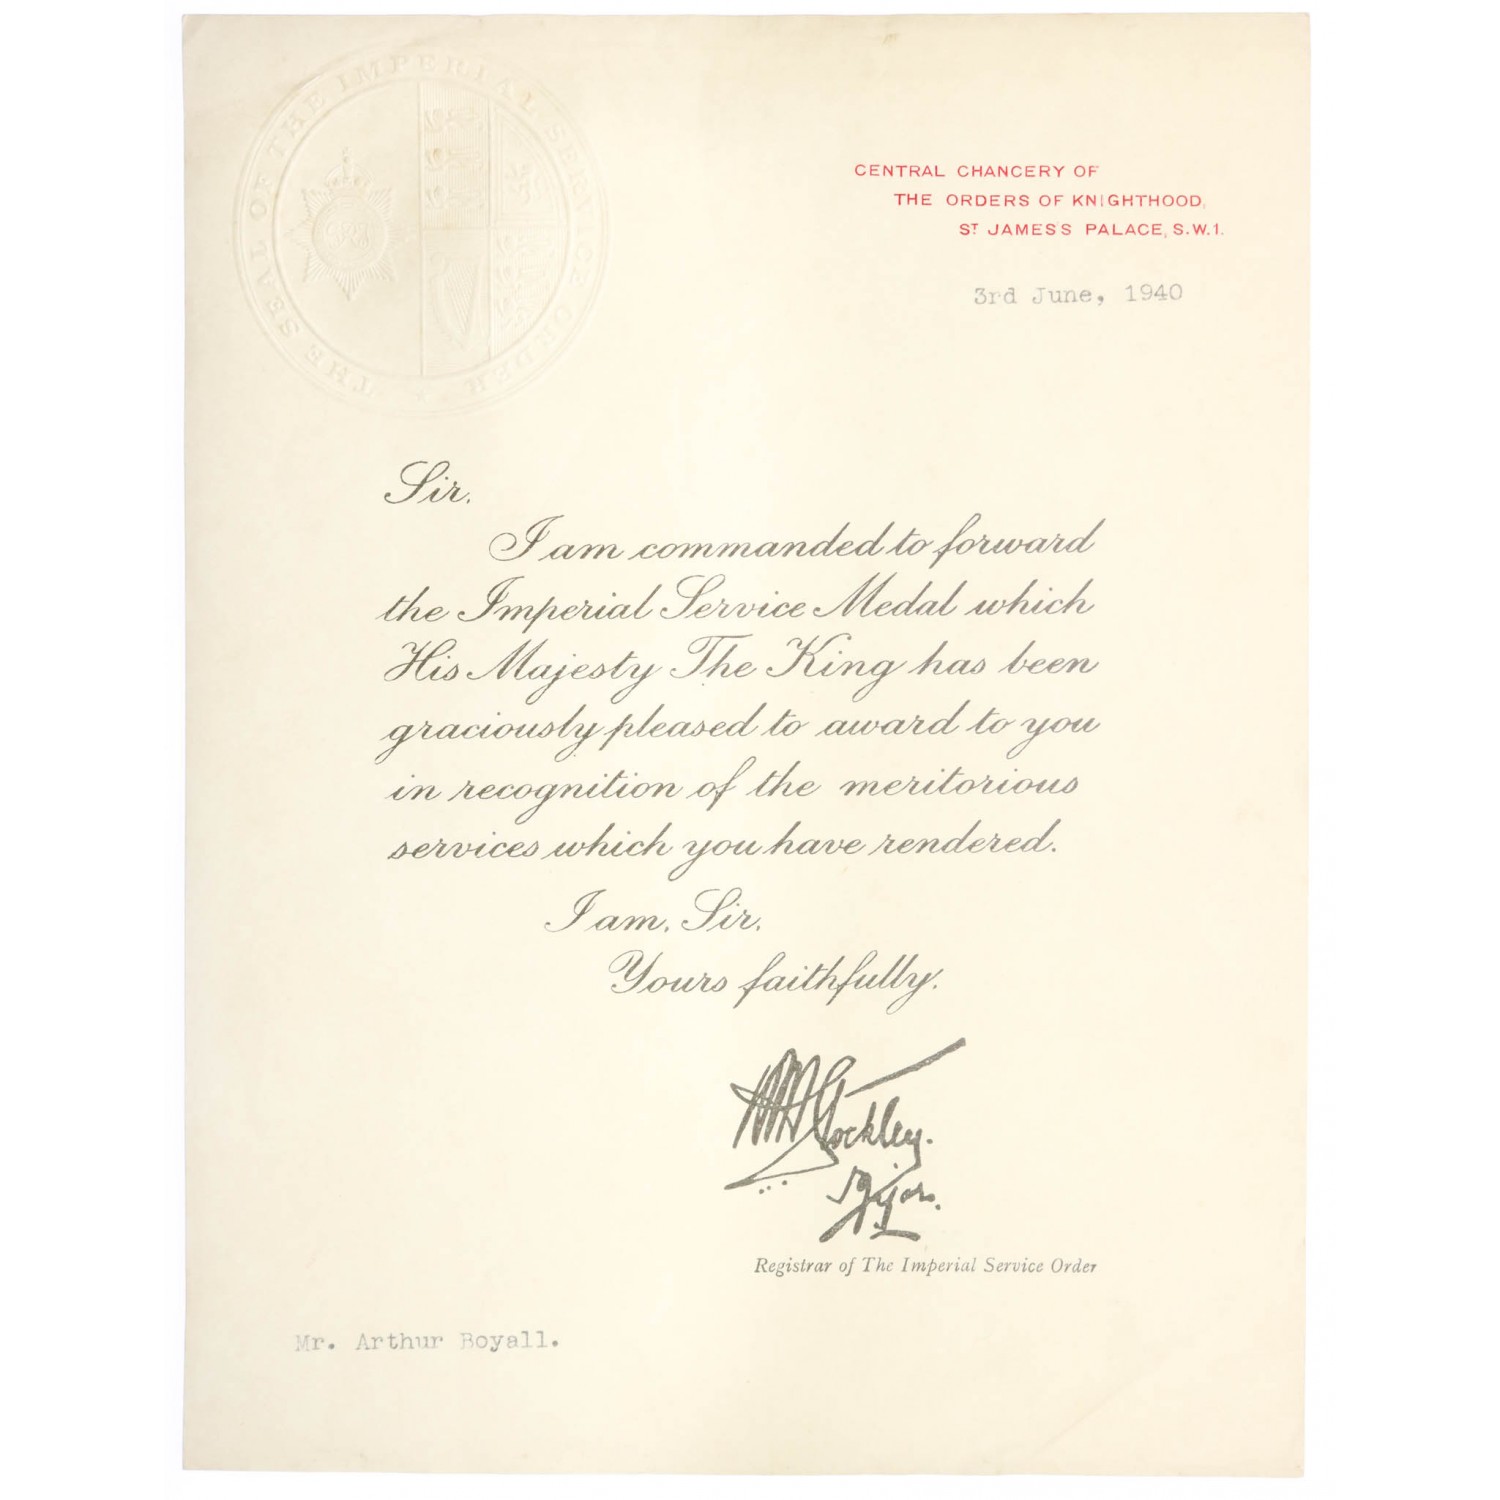 THE SEAL OF THE IMPERIAL SERVICE ORDER
CENTRAL CHANCERY OF
THE ORDERS OF KNIGHTHOOD,
ST JAMES'S PALACE, S.W.1.
3rd June, 1940
Sir,
I am commanded to forward
the Imperial Service Medal which
His Majesty The King has been
graciously pleased to award to you
in recognition of the meritorious
services which you have rendered.
I am, Sir,
Yours faithfully,
Stockley.
Major.
Registrar of The Imperial Service Order
Mr. Arthur Boyall.